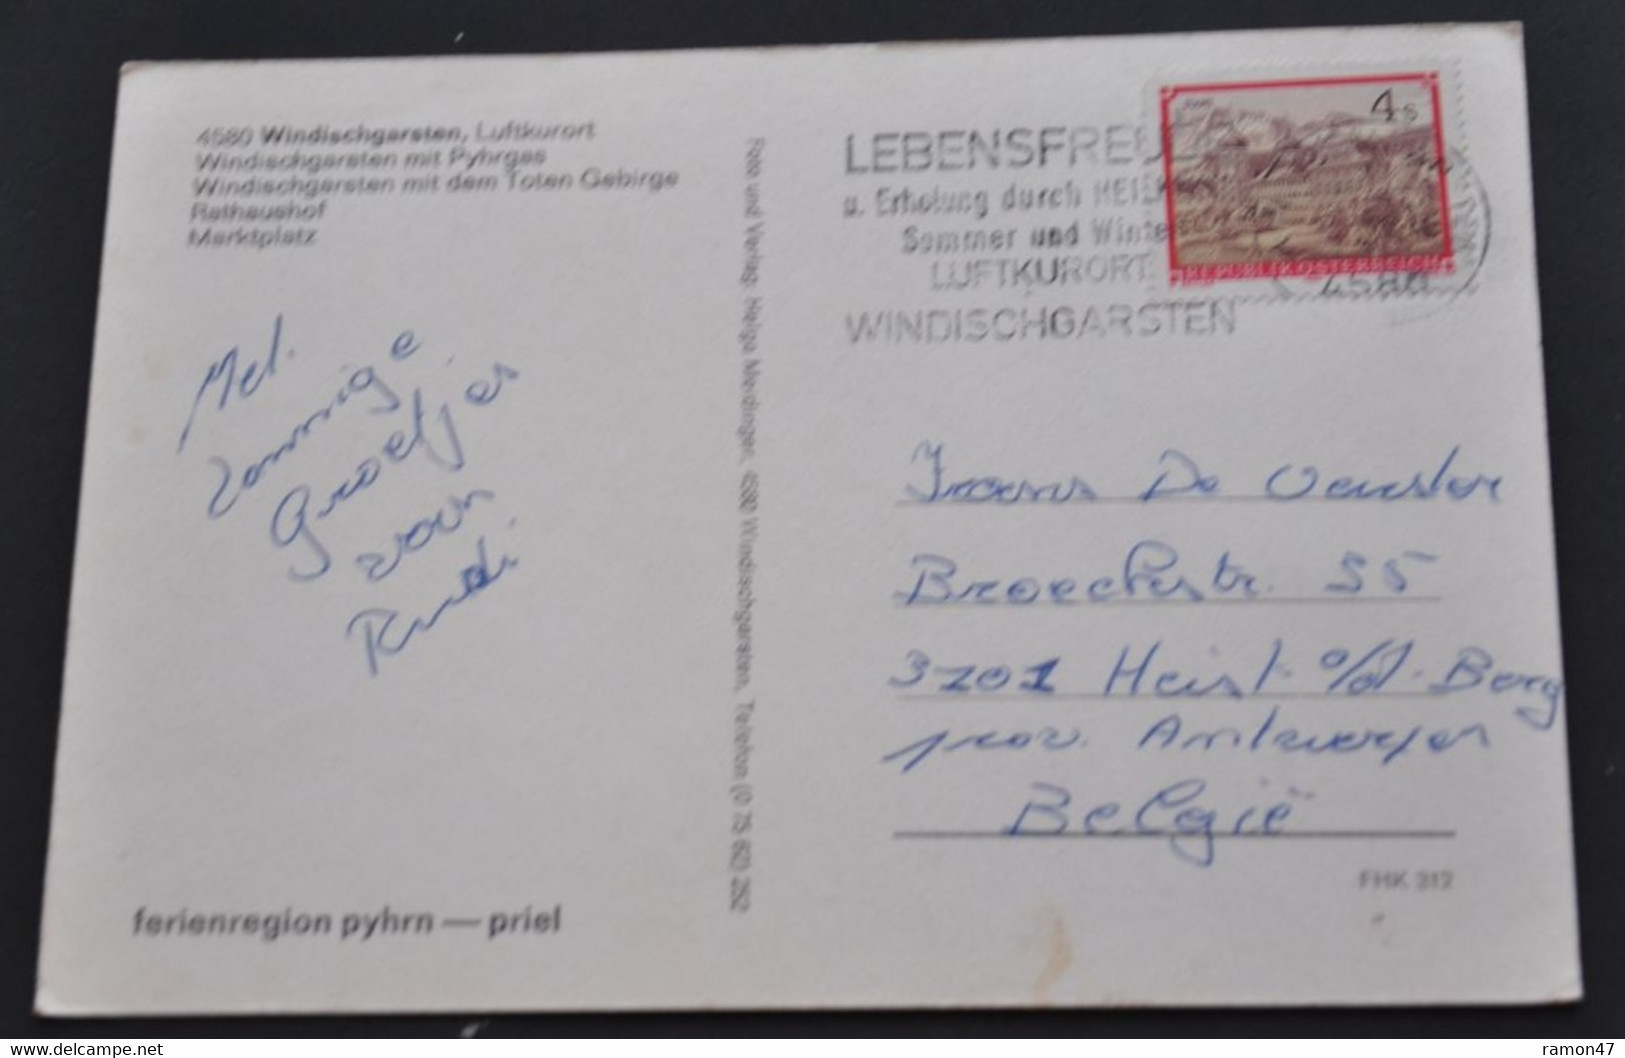 4580 Windischgarsten, Luftkurort
Windischgarsten mit Pyhrgas
Windischgarsten mit dem Toten Gebirge
Rathaushof
Marktplatz
Met
zonnige
Groetjes
van
Rudi
ferienregion pyhrn — priel
Foto und Verlag: Helga Meidinger, 4580 Windischgarsten, Telefon (0 75 62) 282
LEBENSFREUDE
u. Erholung durch
Sommer und Winter
LUFTKURORT
WINDISCHGARSTEN
4580
4 S
REPUBLIK ÖSTERREICH
Frans De
Broeckstr. 55
3201 Heist o/d. Berg
prov. Antwerpen
België
FHK 312
delcampe.net
ramon47